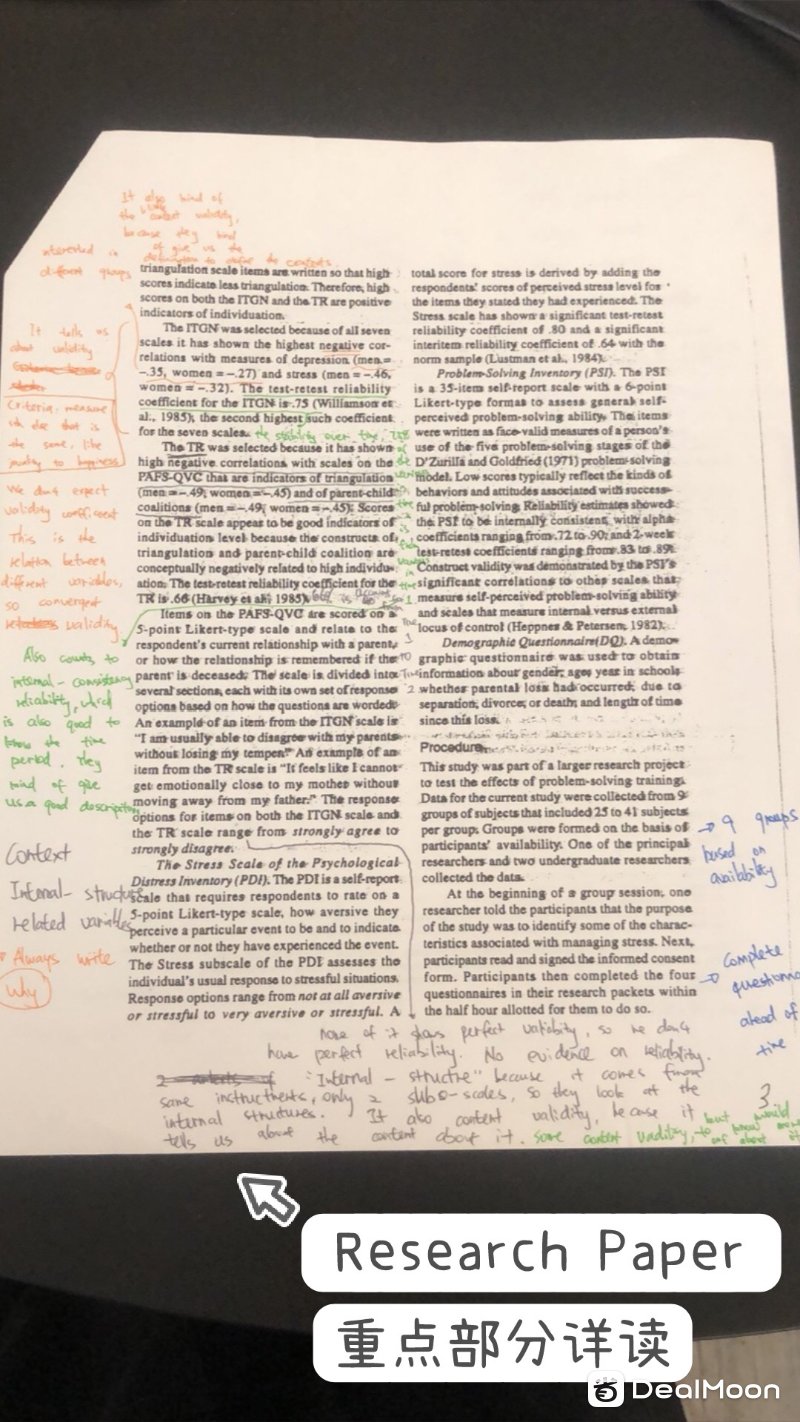 It also kind of
the content validity,
because they kind
of give us the
definition to define the contents.
interested in
different groups
It tells us
that validity
Criteria, measure
sth else that is
the same, like
to happiness
We don't expect
validity coefficient
This is the
relation between
different variables,
so convergent
validity
Also counts to
internal-consistency
reliability, which
is also good to
know the time
period. They
kind of give
us a good description
Context
Internal-structure
related variables
Always write
Why
triangulation scale items are written so that high
scores indicate less triangulation. Therefore, high
scores on both the ITGN and the TR are positive
indicators of individuation.
The ITGN was selected because of all seven
scales it has shown the highest negative cor-
relations with measures of depression (men =
-.35, women = -.27) and stress (men = -.46,
women = -.32). The test-retest reliability
coefficient for the ITGN is .75 (Williamson et
al., 1985), the second highest such coefficient
for the seven scales.
the stability over time,
The TR was selected because it has shown
high negative correlations with scales on the
PAFS-QVC that are indicators of triangulation
(men = -.49; women = -.45) and of parent-child
coalitions (men = -.49; women = -.45). Scores
on the TR scale appear to be good indicators of
individuation level because the constructs of
triangulation and parent-child coalition are
conceptually negatively related to high individu-
ation. The test-retest reliability coefficient for the
TR is .66 (Harvey et al., 1985).
Items on the PAFS-QVC are scored on a
5-point Likert-type scale and relate to the
respondent's current relationship with a parent,
or how the relationship is remembered if the
parent is deceased. The scale is divided into
several sections, each with its own set of response
options based on how the questions are worded.
An example of an item from the ITGN scale is
"I am usually able to disagree with my parents
without losing my temper." An example of an
item from the TR scale is "It feels like I cannot
get emotionally close to my mother without
moving away from my father." The response
options for items on both the ITGN scale and
the TR scale range from strongly agree to
strongly disagree.
The Stress Scale of the Psychological
Distress Inventory (PDI). The PDI is a self-report
scale that requires respondents to rate on a
5-point Likert-type scale, how aversive they
perceive a particular event to be and to indicate
whether or not they have experienced the event.
The Stress subscale of the PDI assesses the
individual's usual response to stressful situations.
Response options range from not at all aversive
or stressful to very aversive or stressful. A
total score for stress is derived by adding the
respondents' scores of perceived stress level for
the items they stated they had experienced. The
Stress scale has shown a significant test-retest
reliability coefficient of .80 and a significant
interitem reliability coefficient of .64 with the
norm sample (Lustman et al., 1984).
Problem-Solving Inventory (PSI). The PSI
is a 35-item self-report scale with a 6-point
Likert-type format to assess general self-
perceived problem-solving ability. The items
were written as face-valid measures of a person's
use of the five problem-solving stages of the
D'Zurilla and Goldfried (1971) problem-solving
model. Low scores typically reflect the kinds of
behaviors and attitudes associated with success-
ful problem-solving. Reliability estimates showed
the PSI to be internally consistent, with alpha
coefficients ranging from .72 to .90; and 2-week
test-retest coefficients ranging from .83 to .89.
Construct validity was demonstrated by the PSI's
significant correlations to other scales that
measure self-perceived problem-solving ability
and scales that measure internal versus external
locus of control (Heppner & Petersen, 1982).
Demographic Questionnaire (DQ). A demo-
graphic questionnaire was used to obtain
information about gender, age, year in school,
whether parental loss had occurred, due to
separation, divorce, or death, and length of time
since this loss.
Procedure
This study was part of a larger research project
to test the effects of problem-solving training.
Data for the current study were collected from 9
groups of subjects that included 25 to 41 subjects
per group. Groups were formed on the basis of
participants' availability. One of the principal
researchers and two undergraduate researchers
collected the data.
At the beginning of a group session, one
researcher told the participants that the purpose
of the study was to identify some of the charac-
teristics associated with managing stress. Next,
participants read and signed the informed consent
form. Participants then completed the four
questionnaires in their research packets within
the half hour allotted for them to do so.
→ 9 groups
based on
availability
Complete
→ questionna
ahead of
time
None of it shows perfect validity, so we don't
have perfect reliability. No evidence on reliability.
"Internal-structre" because it comes from
same instructments, only 2 subo-scales, so they look at the
internal structures. It also content validity, because it
tells us about the content about it. some content validity, to
but would
know more
about it
3
Research Paper
重点部分详读
DealMoon